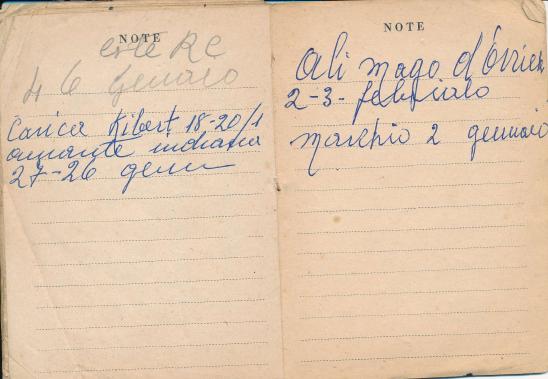 NOTE
RC
4 6 Gennaio
Carica Kibert 18-20/1
amante indiana
27-26 genn
NOTE
Ali mago d'Oriente
2-3- febbraio
Marchio 2 gennaio